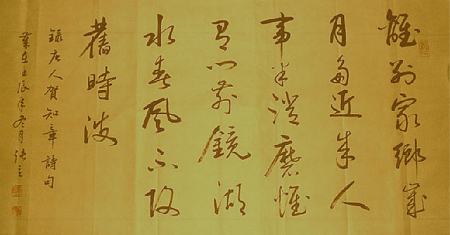 離别家鄉歲
月多近来人
事半消磨惟
有门前鏡湖
水春風不改
舊時波
錄唐人賀知章詩句
年冬月